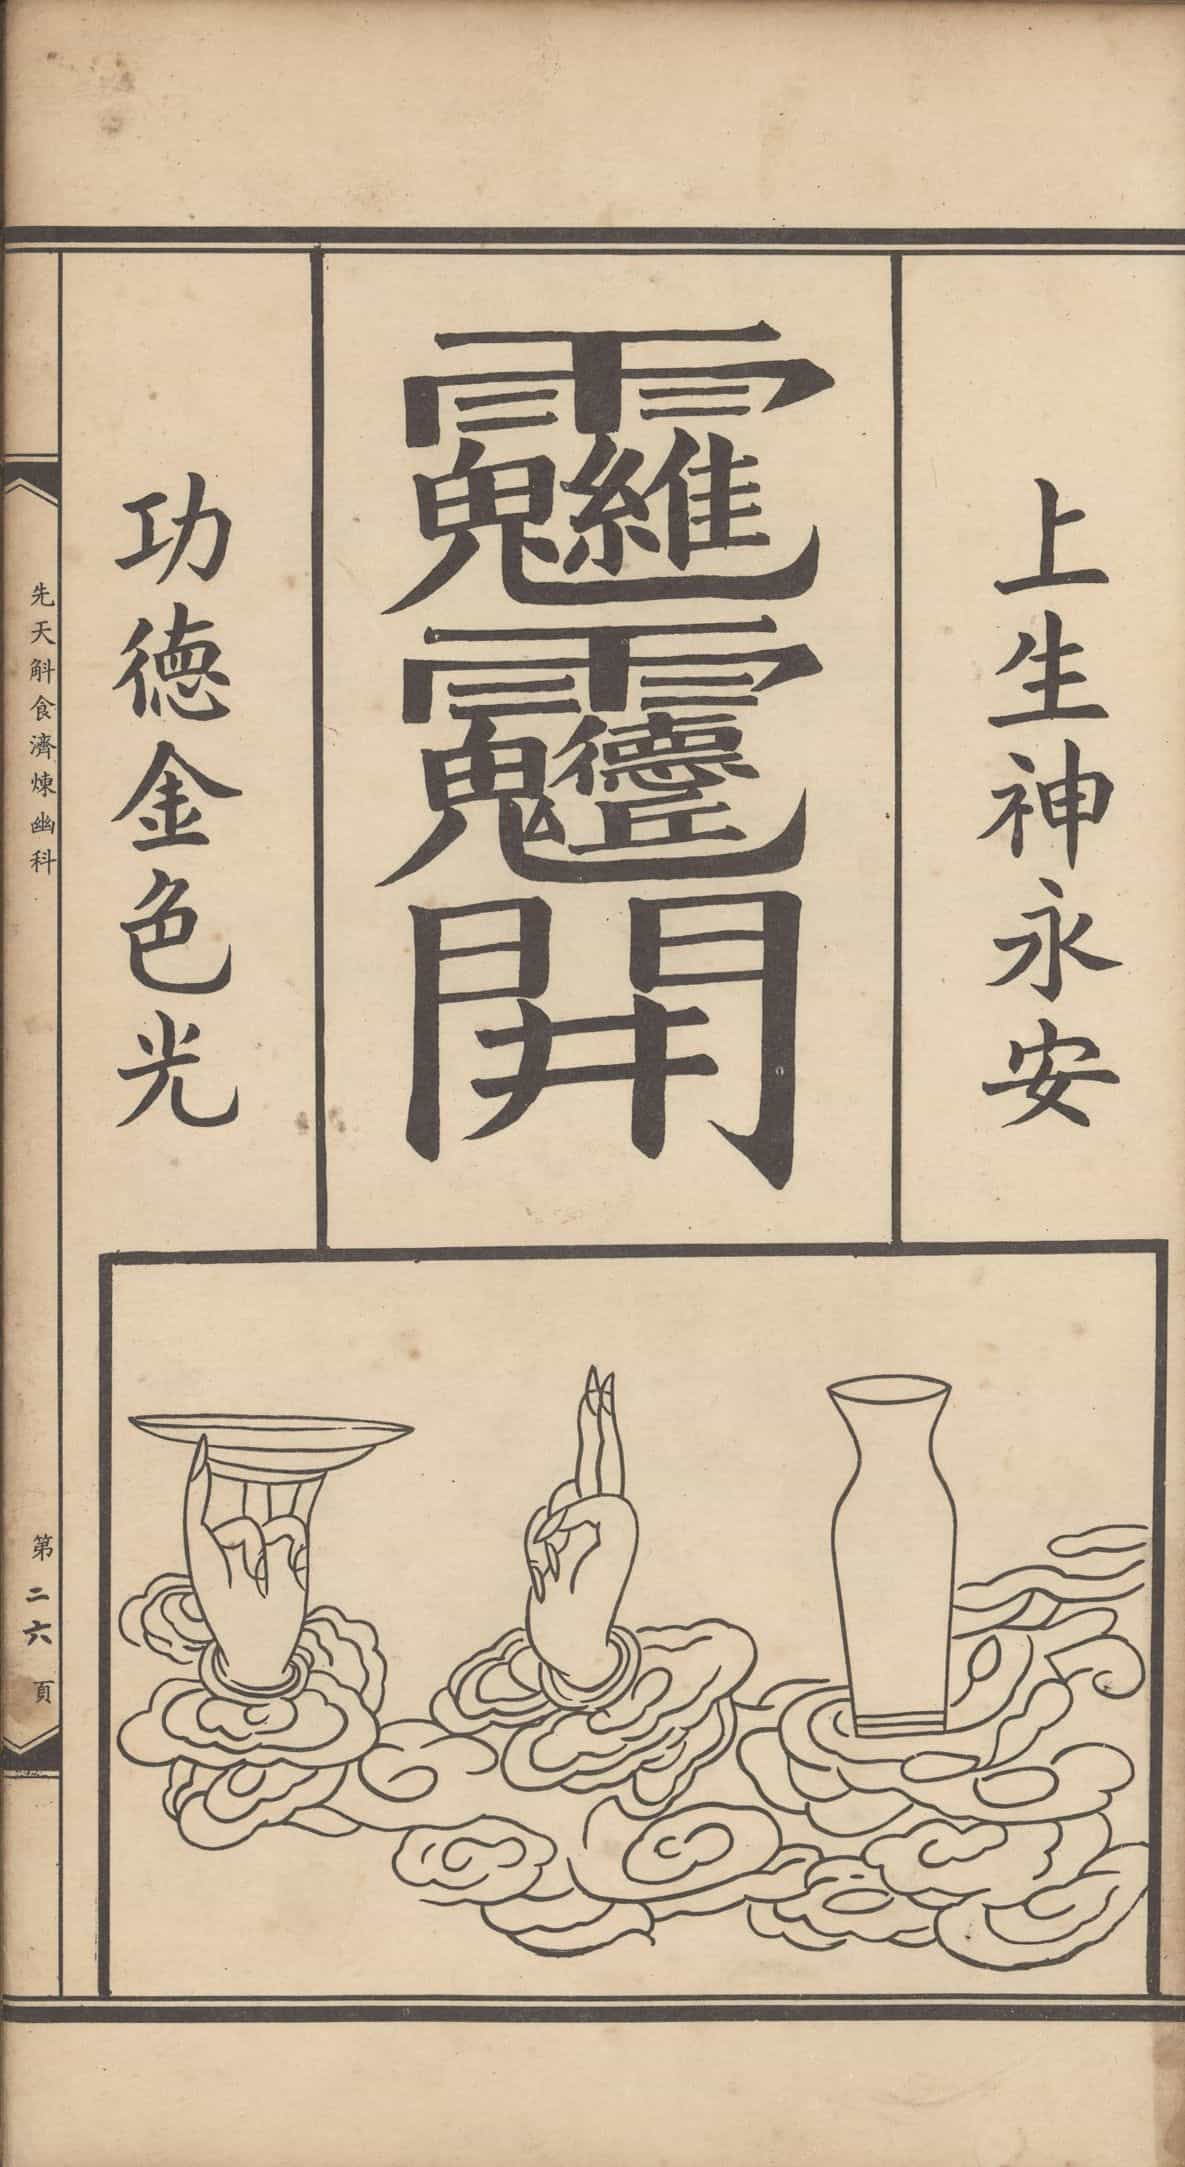 上生神永安
開
功德金色光
先天斛食濟煉幽科
第二六頁